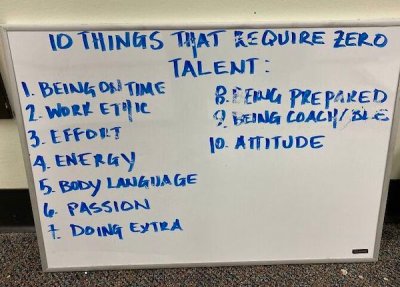 10 THINGS THAT REQUIRE ZERO
TALENT:
1. BEING ON TIME
2. WORK ETHIC
3. EFFORT
4. ENERGY
5. BODY LANGUAGE
6. PASSION
7. DOING EXTRA
8. BEING PREPARED
9. BEING COACH/BLE
10. ATTITUDE